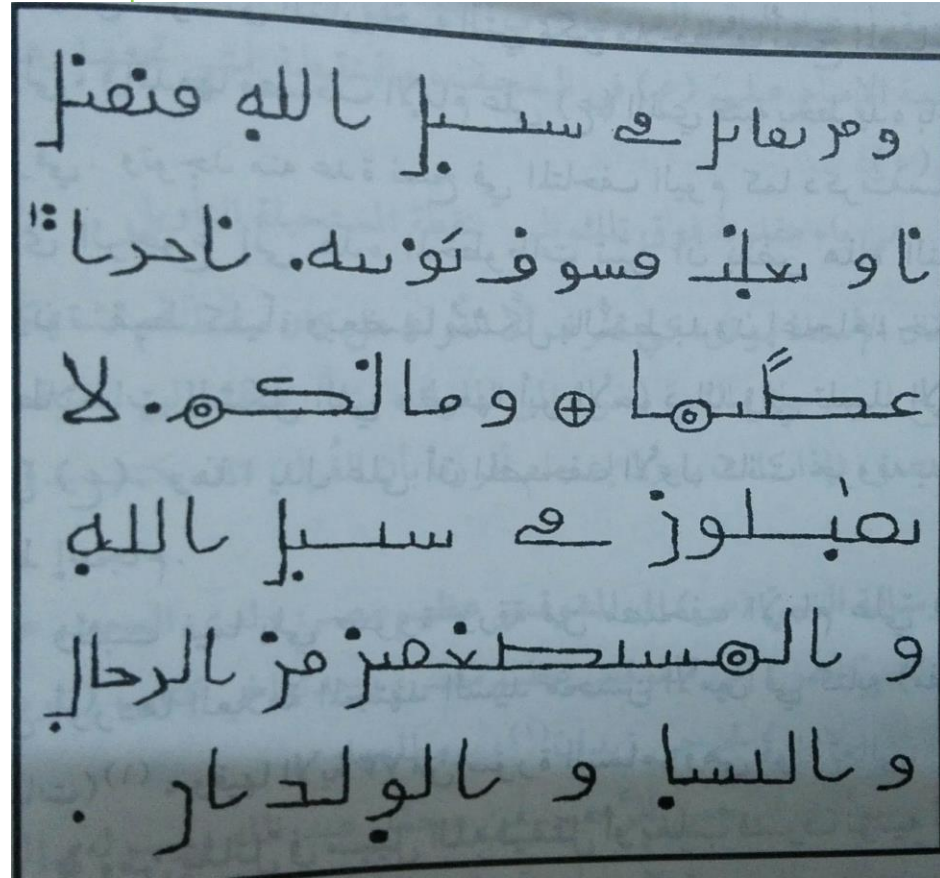 ومن يقاتل في سبيل الله فيقتل
او يغلب فسوف نؤتيه اجرا
عظيما وما لكم لا
تقٰتلون في سبيل الله
والمستضعفين من الرجال
والنسا والولدان